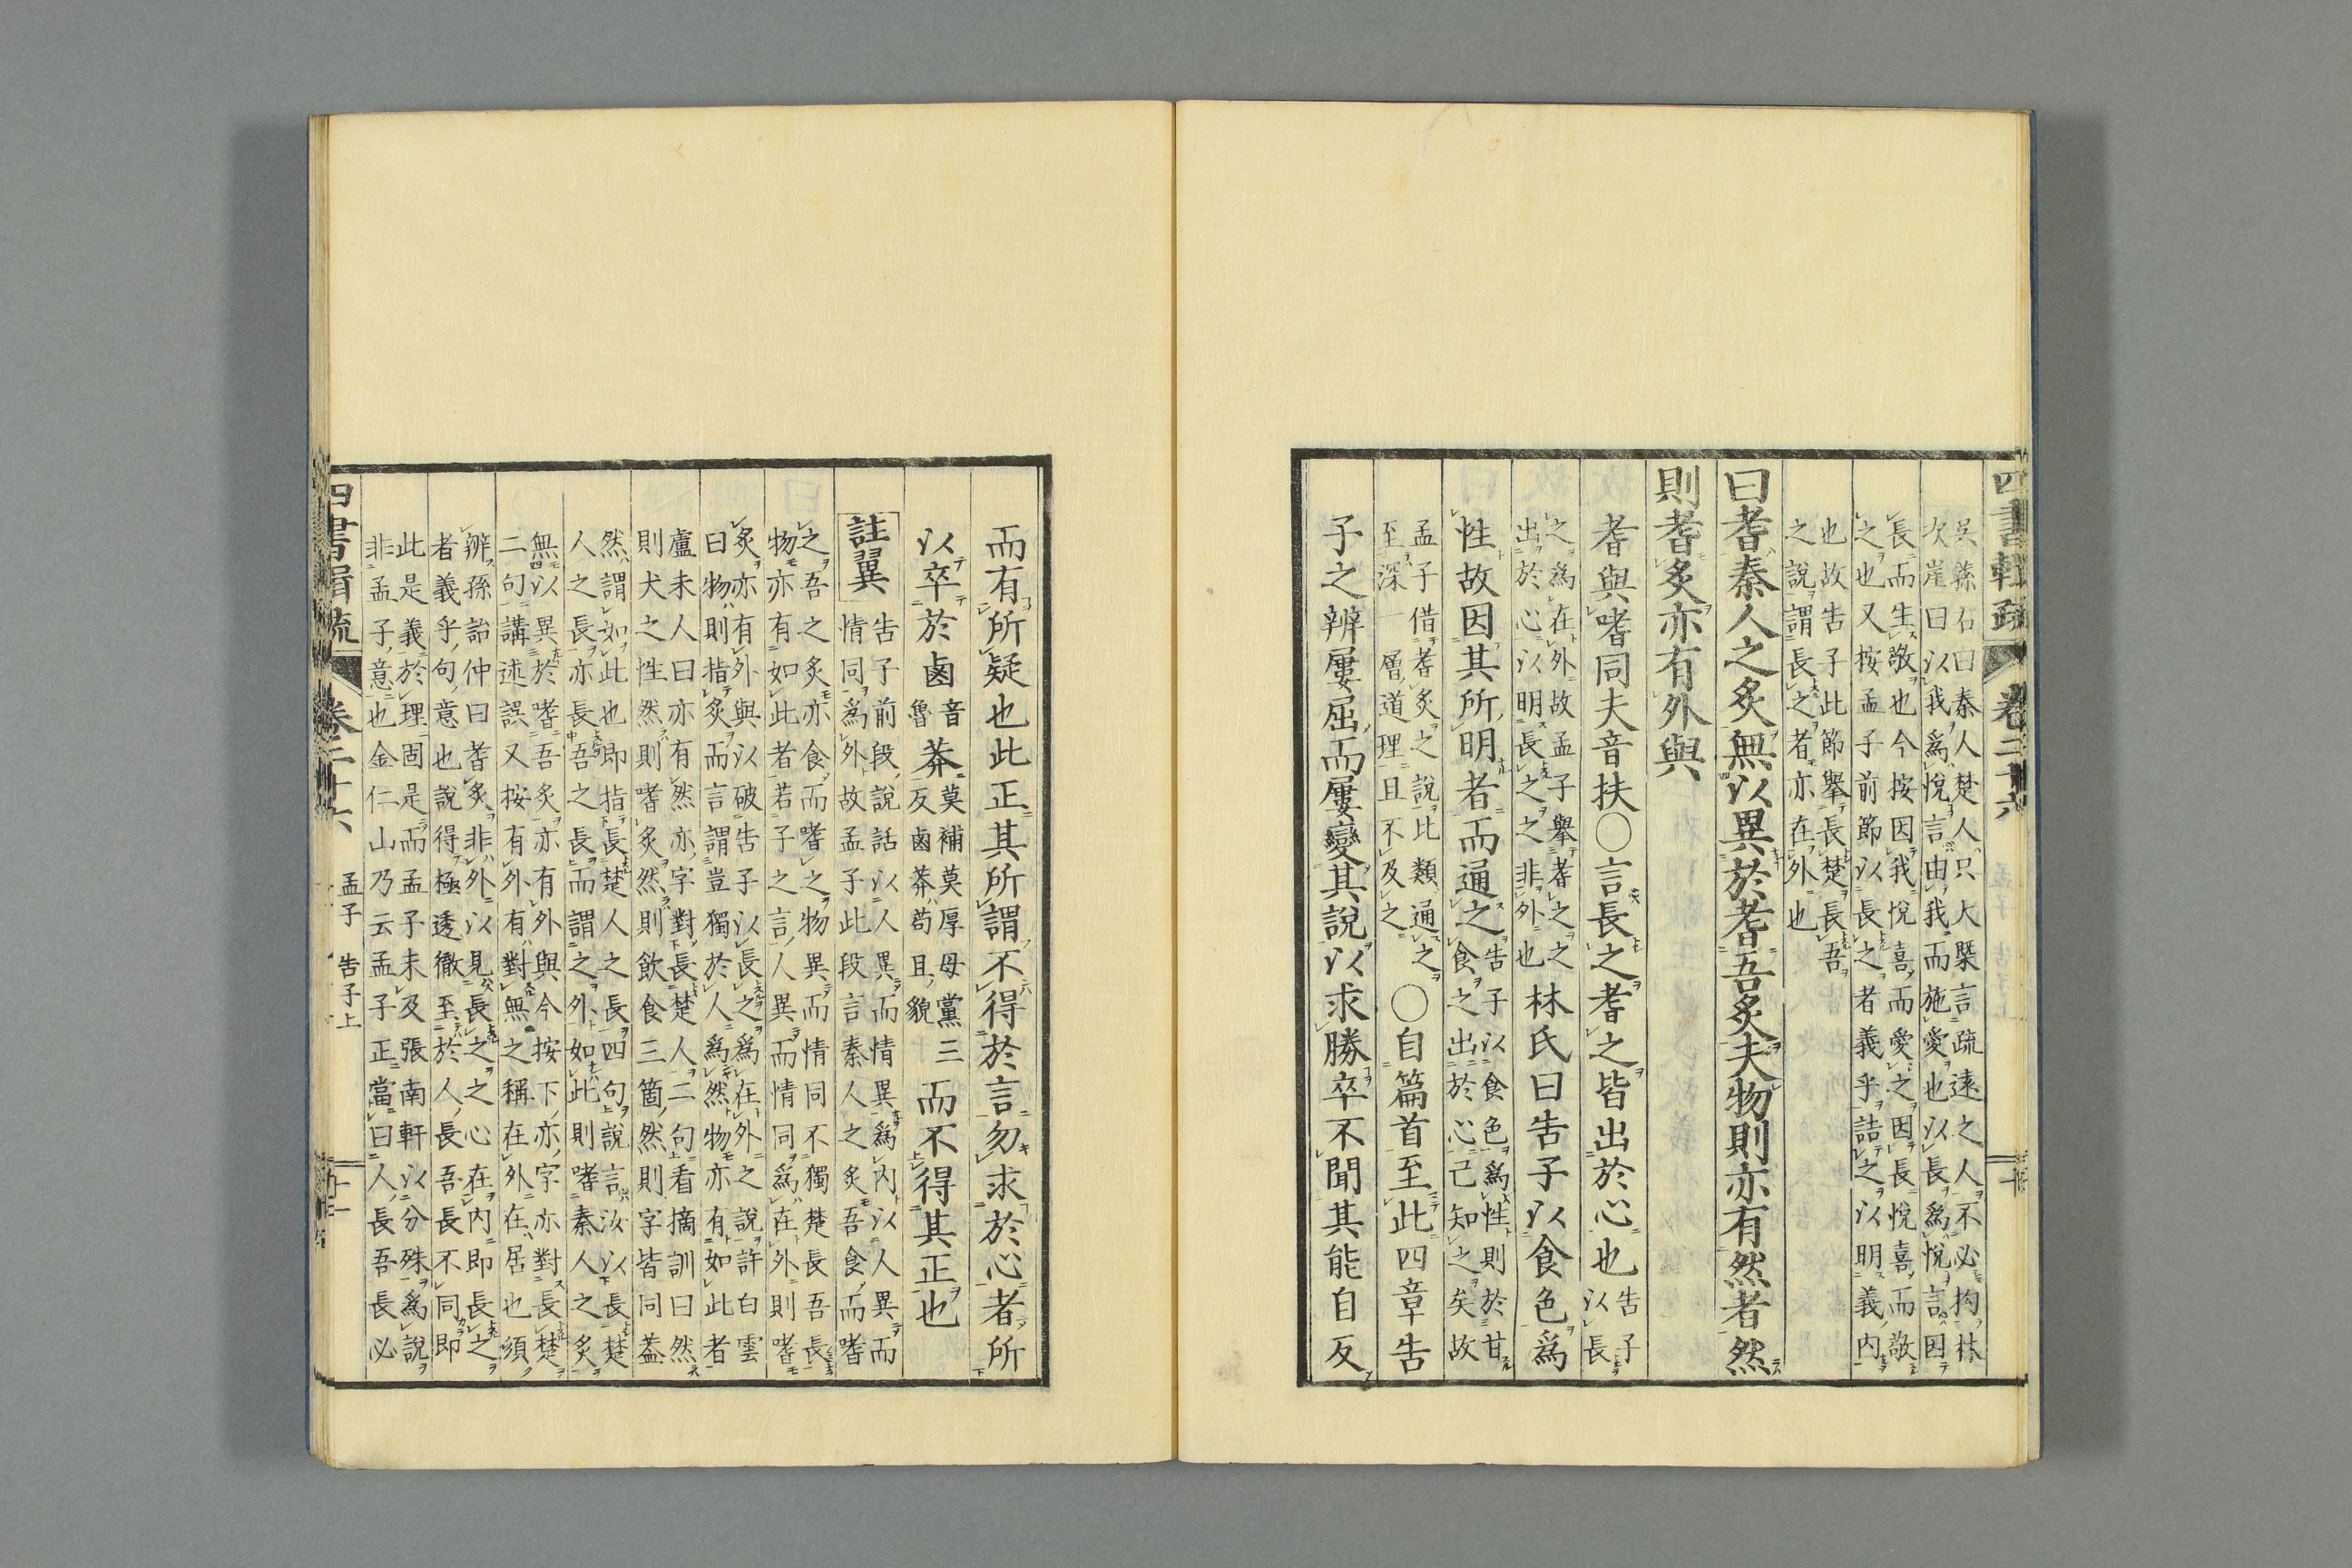 四書輯疏 卷二十六
吳蓀石曰秦人楚人只大槩言疏遠之人不必拘林
次崖曰以我爲悅言由我而施愛也以長爲悅言因
長而生敬也今按因我悅喜而愛之因長悅喜而敬
之也又按孟子前節以長之者義乎詰之以明義内
也故告子此節舉長楚長吾
之說謂長之者亦在外也
曰耆秦人之炙無以異於耆吾炙夫物則亦有然者然
則耆炙亦有外與
耆與嗜同夫音扶○言長之耆之皆出於心也
告子
以長
之爲在外故孟子舉耆之之
出於心以明長之之非外也
林氏曰告子以食色爲
性故因其所明者而通之
告子以食色爲性則於甘
食之出於心己知之矣故
孟子借耆炙之說比類通之
至深一層道理且不及之
○自篇首至此四章告
子之辨屢屈而屢變其說以求勝卒不聞其能自反
而有所疑也此正其所謂不得於言勿求於心者所
以卒於鹵
音
魯
莽
莫補莫厚母黨三
反鹵莽苟且貌
而不得其正也
註翼
告子前段說話以人異而情異爲内以人異而
情同爲外故孟子此段言秦人之炙吾食而嗜
之吾之炙亦食而嗜之物異而情同不獨楚長吾長
物亦有如此者若子之言人異而情同爲在外則嗜
炙亦有外與以破告子以長之爲在外之說許白雲
曰物則指炙而言謂豈獨於人爲然物亦有如此者
盧未人曰亦有然亦字對長楚人二句看摘訓曰然
則犬之性然則嗜炙然則飲食三箇然則字皆同葢
然謂如此也即指長楚人之長四句說言汝以長楚
人之長亦長吾之長而謂之外如此則嗜秦人之炙
無以異於嗜吾炙亦有外與今按下亦字亦對長楚
二句講述誤又按有外有對無之稱在外在居也須
辨孫詒仲曰耆炙非外以見長之之心在内即長之
者義乎句意也說得極透徹至於人長吾長不同即
此是義於理固是而孟子未及張南軒以分殊爲說
非孟子意也金仁山乃云孟子正當曰人長吾長必
四書輯疏 卷二十六 孟子 告子上